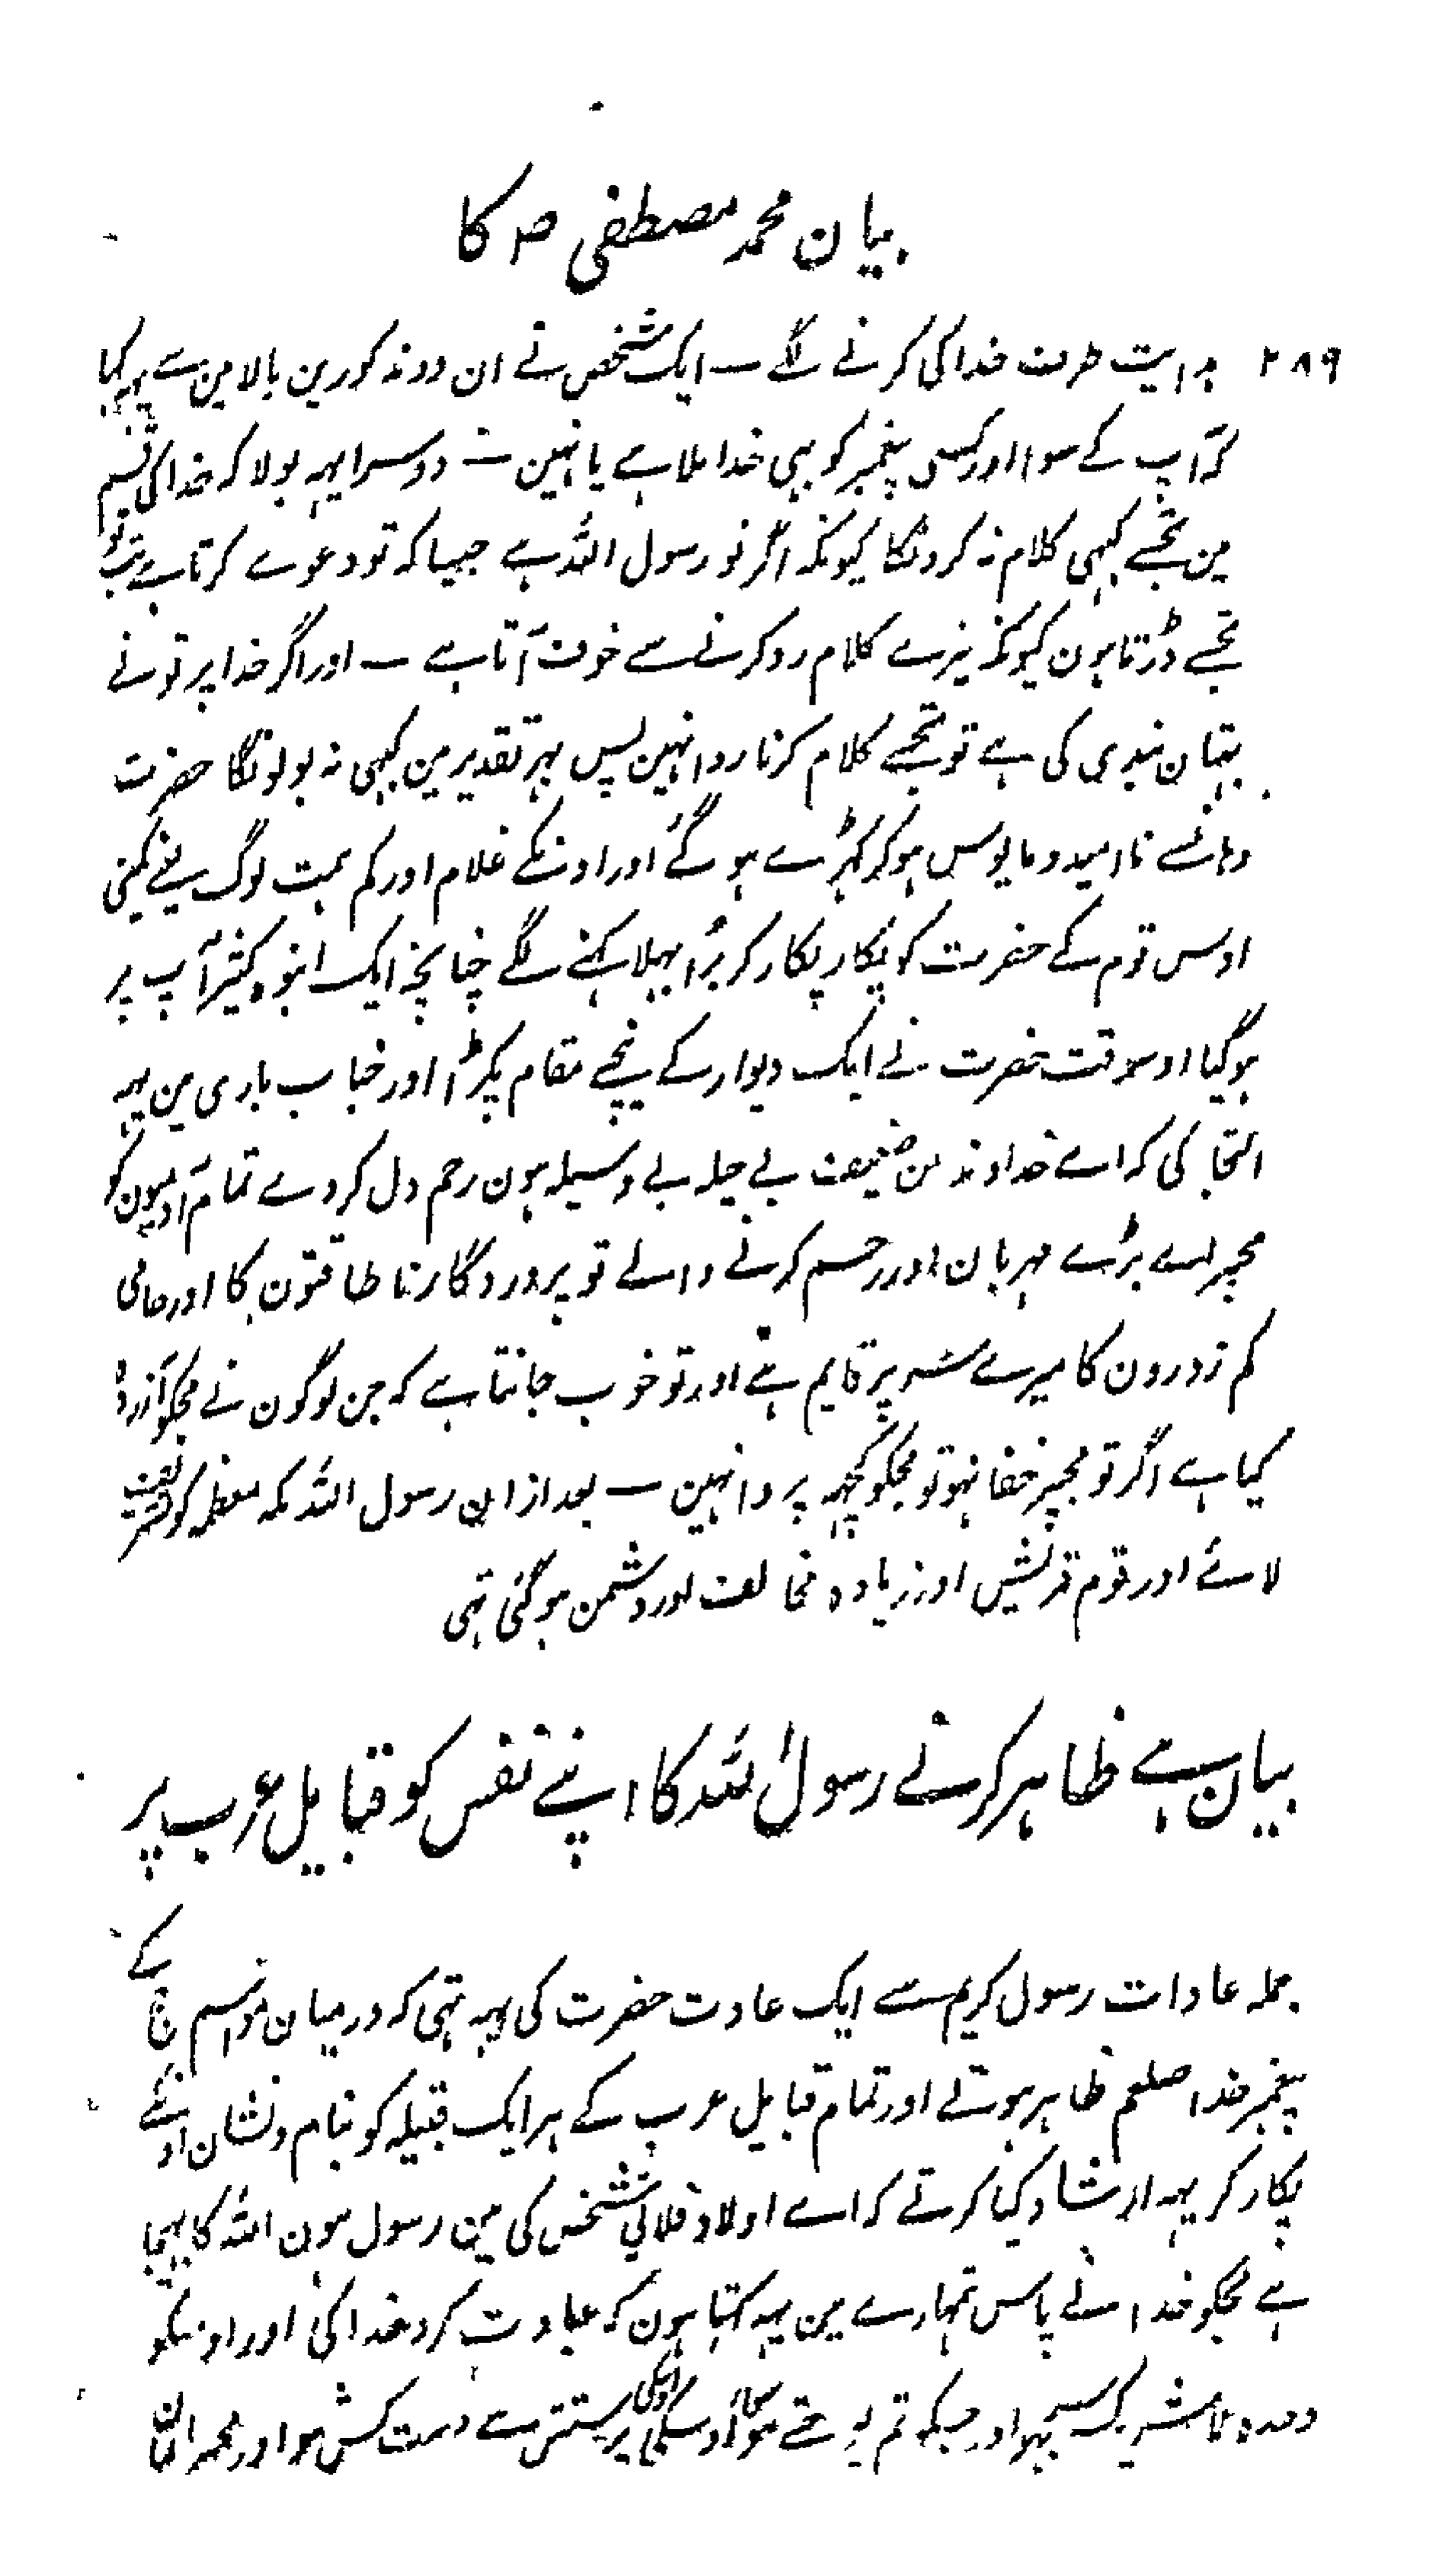 بیان محمد مصطفی ص کا
۲۸۹ ہدایت طرف خدا کی کرنے لگے ۔ ایک شخص نے ان دو مذکورین بالا مین سے یہہ کہا
کہ آپ کے سوا اور کسی پیغمبر کو بہی خدا ملا ہے یا نہین ۔ دوسرا یہہ بولا کہ خدا کی قسم
مین تجھے کبہی کلام نہ کرونگا کیونکہ اگر تو رسول اللہ ہے جیسا کہ تو دعوے کرتا ہے تب تو
تجھے ڈرتا ہون کیونکہ تیرے کلام رد کرنے سے خوف آتا ہے ۔ اور اگر خدا پر تو نے
بہتان بندی کی ہے تو تجھے کلام کرنا روا نہین پس بہر تقدیر مین کبہی نہ بولونگا حضرت
وہانسے نا امید و مایوس ہوکر کہڑے ہو گئے اور اونکے غلام اور کم ہمت لوگ یعنے کمینی
اوس قوم کے حضرت کو پکار پکار کر برا بہلا کہنے لگے چنانچہ ایک انبوہ کثیر آپ پر
ہوگیا اوسوقت حضرت نے ایک دیوار کے نیچے مقام پکڑا اور جناب باری مین یہہ
التجا کی کہ اے خداوند مین ضعیف بے حیلہ بے وسیلہ ہون رحم دل کر دے تمام آدمیون کو
مجہپر اے بڑے مہربان اور رحم کرنے والے تو پروردگار نا طاقتون کا اور حامی
کم زورون کا میرے سر پر قایم ہے اور تو خوب جانتا ہے کہ جن لوگون نے مجکو آزردہ
کیا ہے اگر تو مجہپر خفا نہو تو مجکو کچہہ پروا نہین ۔ بعد ازان رسول اللہ مکہ معظمہ کو تشریف
لائے اور قوم قریش اور زیادہ مخالف اور دشمن ہوگئی تہی
بیان ہے ظاہر کرنے رسول اللہ کا اپنے نفس کو قبایل عرب پر
جملہ عادات رسول کریم سے ایک عادت حضرت کی یہہ تہی کہ درمیان مواسم حج کے
پیغمبر خدا صلعم ظاہر ہوتے اور تمام قبایل عرب کے ہر ایک قبیلہ کو بنام و نشان اونکے
پکار کر یہہ ارشاد کیا کرتے کہ اے اولاد فلانے شخص کی مین رسول ہون اللہ کا بہیجا
ہے مجکو خدا نے پاس تمہارے مین یہہ کہتا ہون کہ عبادت کرو خدا کی اور اوسکو
وحدہ لا شریک سمجہو اور جسکو تم پوجتے ہو سوائے اوسکی پرستش سے دست کش ہو اور مجہپر ایمان